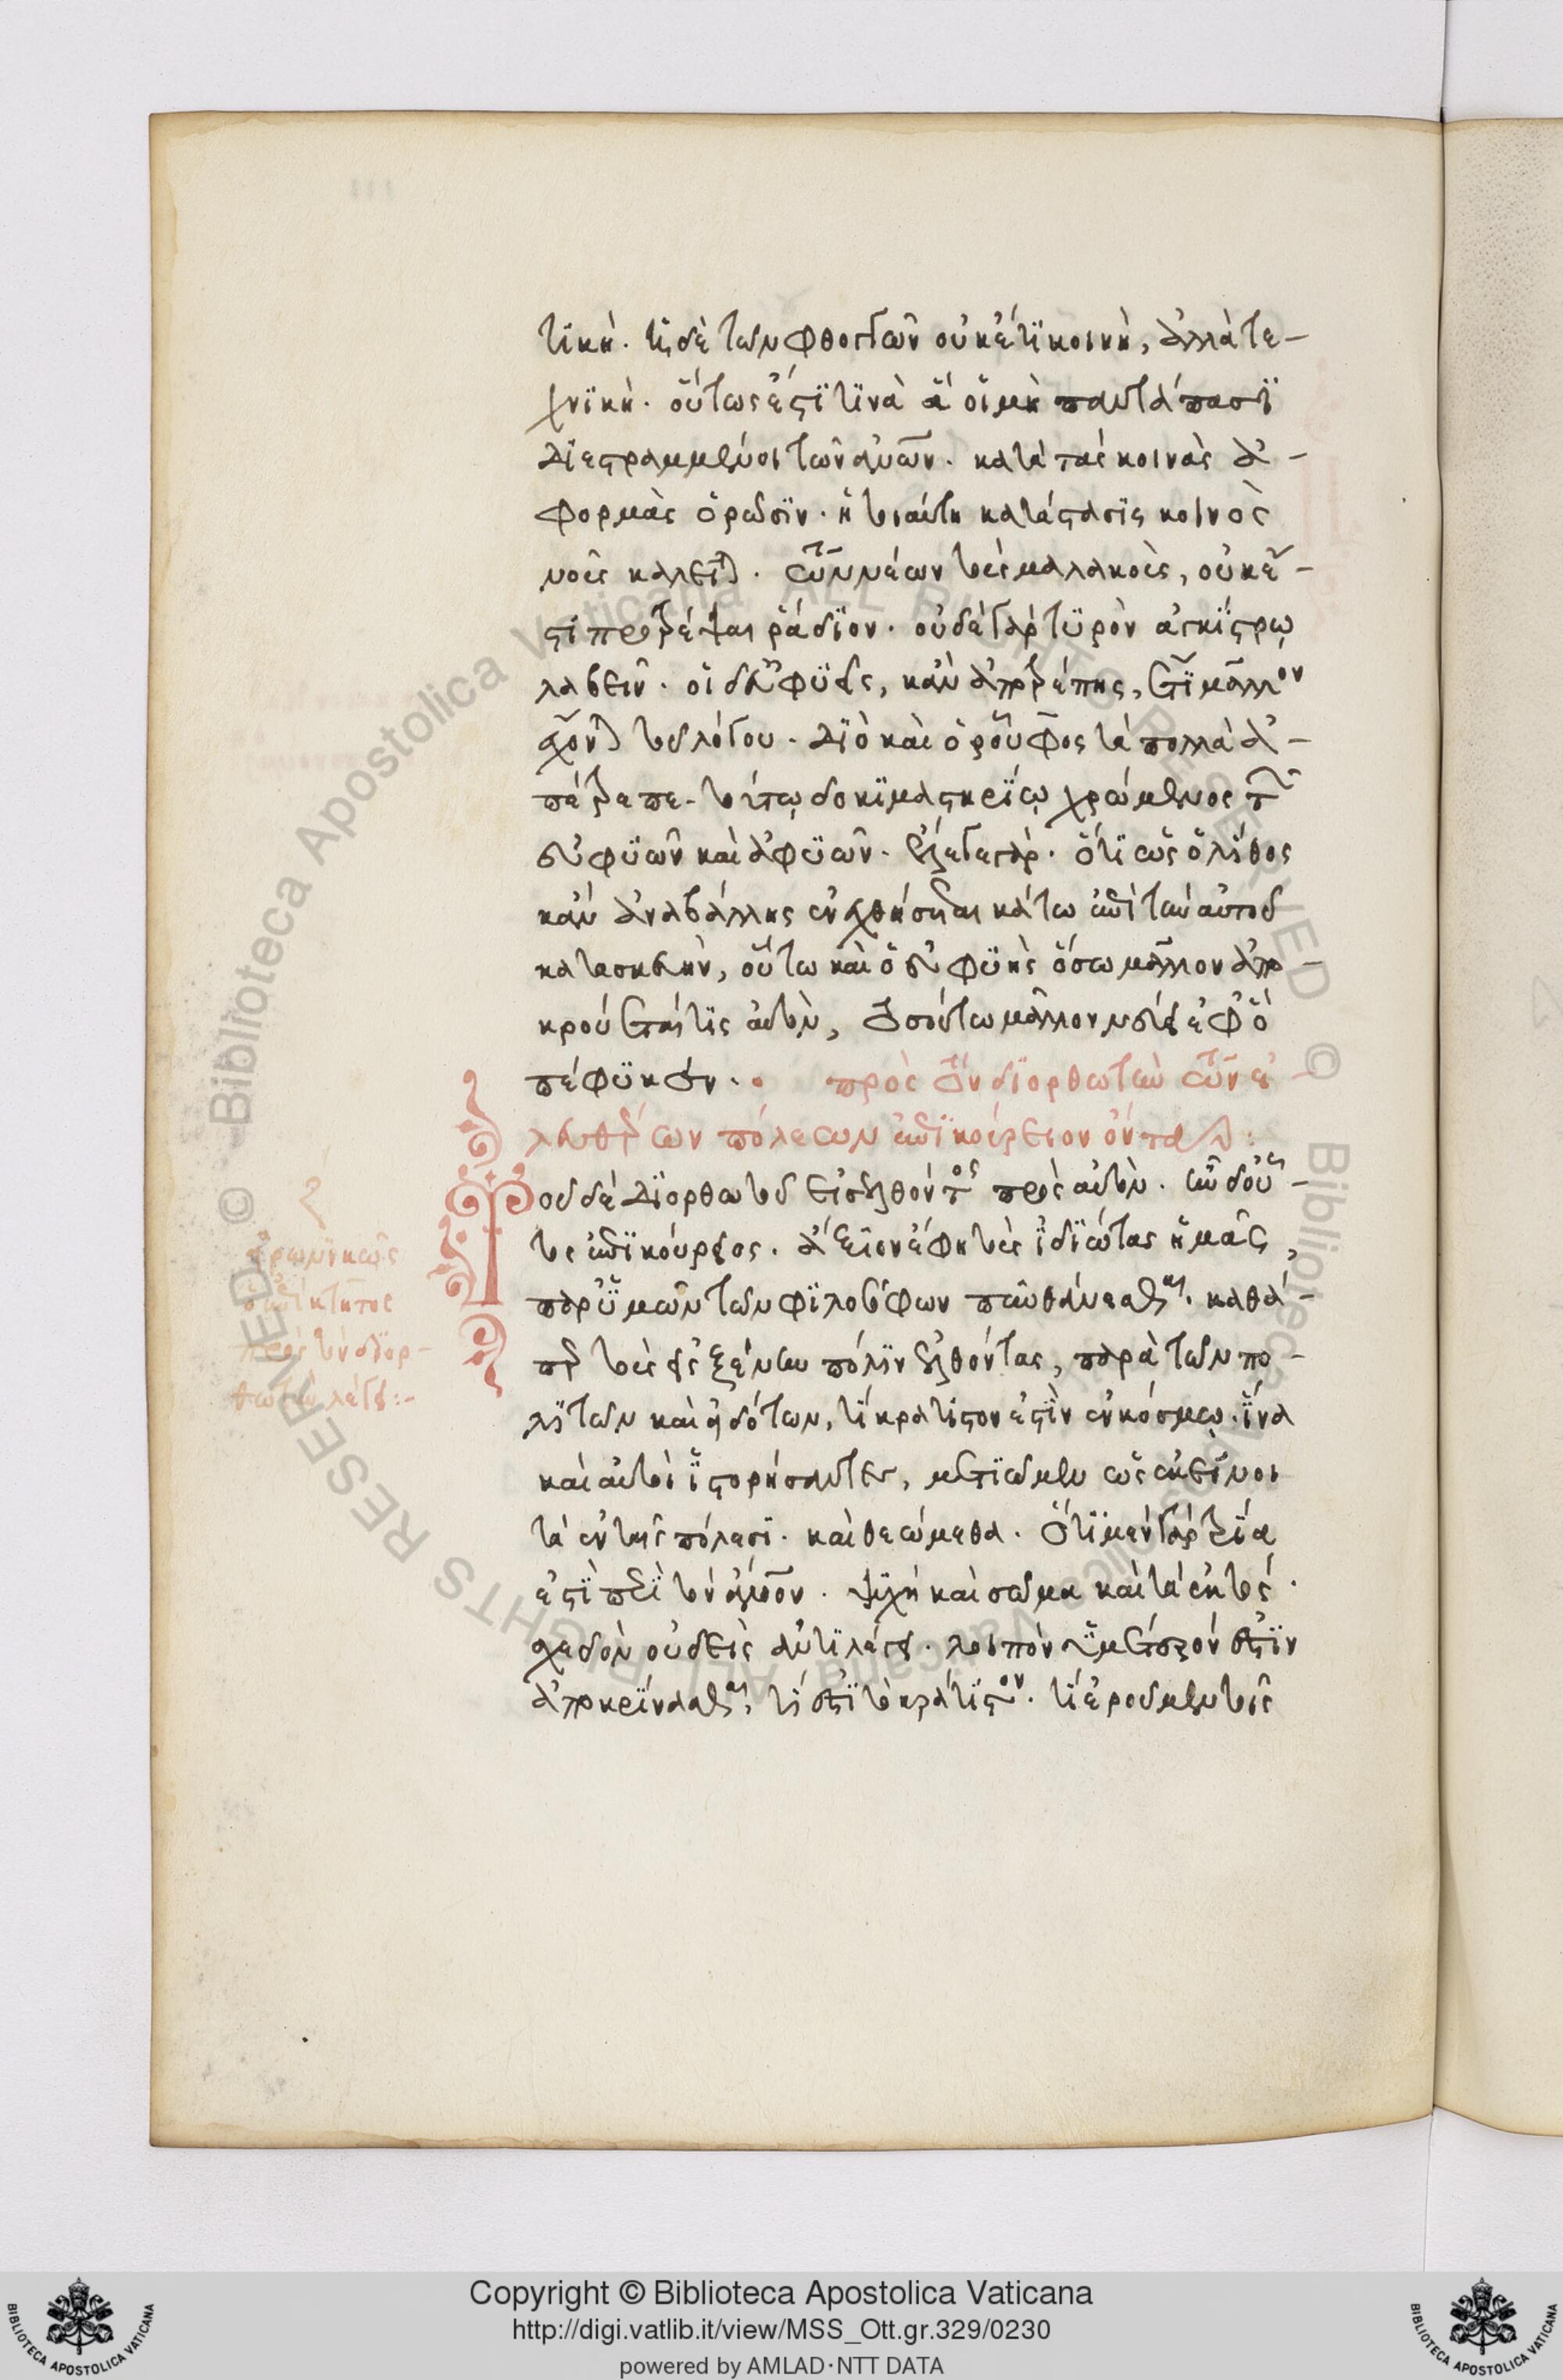 τικὴ. ἡ δὲ τῶν φθόγγων οὐκέτι κοινὴ, ἀλλὰ τε-
χνικὴ. οὕτως ἐστί τινα ἃ οἱ μὴ παντάπασι
διεστραμμένοι τῶν ἀνῶν. κατὰ τὰς κοινὰς ἀ-
φορμὰς ὁρῶσιν. ἡ τοιαύτη κατάστασις κοινὸς
νοῦς καλεῖται. τῶν νέων τοὺς μαλακοὺς, οὐκ ἔ-
στι προτρέψαι ῥάδιον. οὐδὲ γὰρ τυρὸν ἀγκίστρῳ
λαβεῖν. οἱ δ' εὐφυεῖς, κἂν ἀποτρέπῃς, ἔτι μᾶλλον
ἔχονται τοῦ λόγου. διὸ καὶ ὁ ῥοῦφος τὰ πολλὰ ἀ-
πέτρεπε. τούτῳ δοκιμαστηρίῳ χρώμενος τῶν
εὐφυῶν καὶ ἀφυῶν. ἔλεγε γὰρ. ὅτι ὡς ὁ λίθος
κἂν ἀναβάλλης ἐνεχθήσεται κάτω ἐπὶ τὴν αὐτοῦ
κατασκευὴν, οὕτω καὶ ὁ εὐφυὴς ὅσω μᾶλλον ἀπο-
κρούεταί τις αὐτὸν, τοσούτω μᾶλλον νεύει ἐφ' ὃ
πέφυκεν. πρὸς τὸν διορθωτὴν τῶν ἐ-
λευθέρων πόλεων ἐπικούρειον ὄντα
Τοῦ δὲ διορθωτοῦ εἰσελθόντος πρὸς αὐτὸν. ἦν δ' οὗ-
τος ἐπικούρειος. ἄξιον ἔφη τοὺς ἰδιώτας ἡμᾶς,
παρ' ὑμῶν τῶν φιλοσόφων πυνθάνεσθαι. καθά-
περ τοὺς εἰς ξένην πόλιν ἐλθόντας, παρὰ τῶν πο-
λιτῶν καὶ εἰδότων, τί κράτιστον ἐστὶν ἐν κόσμῳ. ἵνα
καὶ αὐτοὶ ἱστορήσαντες, μετίωμεν ὡς ἐκεῖνοι
τὰ ἐν ταῖς πόλεσι. καὶ θεώμεθα. ὅτι μὲν γὰρ τρία
ἐστὶ περὶ τὸν ἄνον. ψυχὴ καὶ σῶμα καὶ τὰ ἐκτός.
σχεδὸν οὐδεὶς ἀντιλέγει. λοιπὸν ὑμέτερόν ἐστιν
ἀποκρίνασθαι, τί ἐστὶ τὸ κράτιστον. τί ἐροῦμεν τοῖς
εἰρωνικῶς
ὁ ἐπίκτητος
πρὸς τὸν διορ-
θωτὴν λέγει:-
Copyright © Biblioteca Apostolica Vaticana
http://digi.vatlib.it/view/MSS_Ott.gr.329/0230
powered by AMLAD·NTT DATA
BIBLIOTECA APOSTOLICA VATICANA
BIBLIOTECA APOSTOLICA VATICANA
© Biblioteca Apostolica Vaticana ALL RIGHTS RESERVED
© Biblioteca Apostolica Vaticana ALL RIGHTS RESERVED